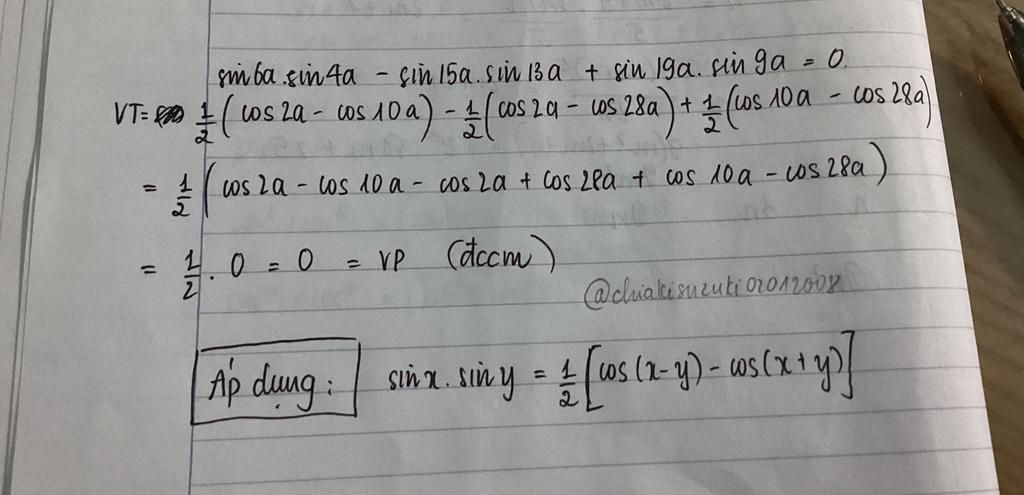 sin6a.sin4a - sin15a.sin13a + sin19a.sin9a = 0.
VT = 1/2 (cos2a - cos10a) - 1/2 (cos2a - cos28a) + 1/2 (cos10a - cos28a)
= 1/2 (cos2a - cos10a - cos2a + cos28a + cos10a - cos28a)
= 1/2 . 0 = 0 = VP (đccm)
@chiakisuzuki02012008
Áp dụng: sinx.siny = 1/2 [cos(x-y) - cos(x+y)]